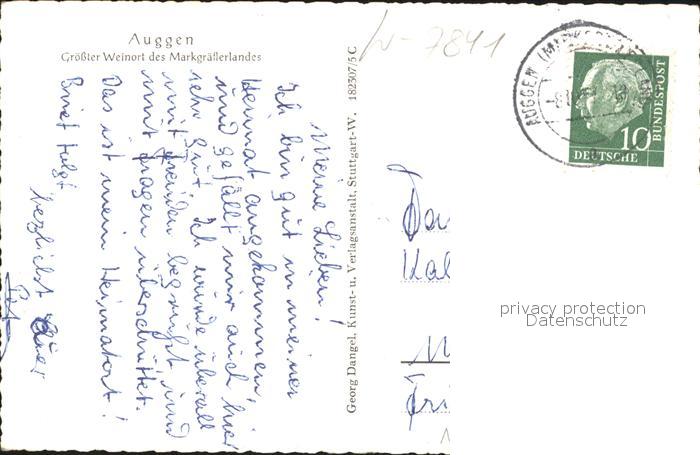 Auggen
Größter Weinort des Markgräflerlandes
Meine Lieben!
Ich bin gut in meiner
Heimat angekommen,
und gefällt mir auch hier
sehr gut. Ich wurde überall
mit Freuden begrüßt und
mit Fragen überschüttet.
Das ist mein Heimatort!
Brief folgt
herzlichst Euer
Georg Dangel, Kunst- u. Verlagsanstalt, Stuttgart-W. 182307/5 C
W-7841
AUGGEN
10
DEUTSCHE
BUNDESPOST
Kal
privacy protection
Datenschutz